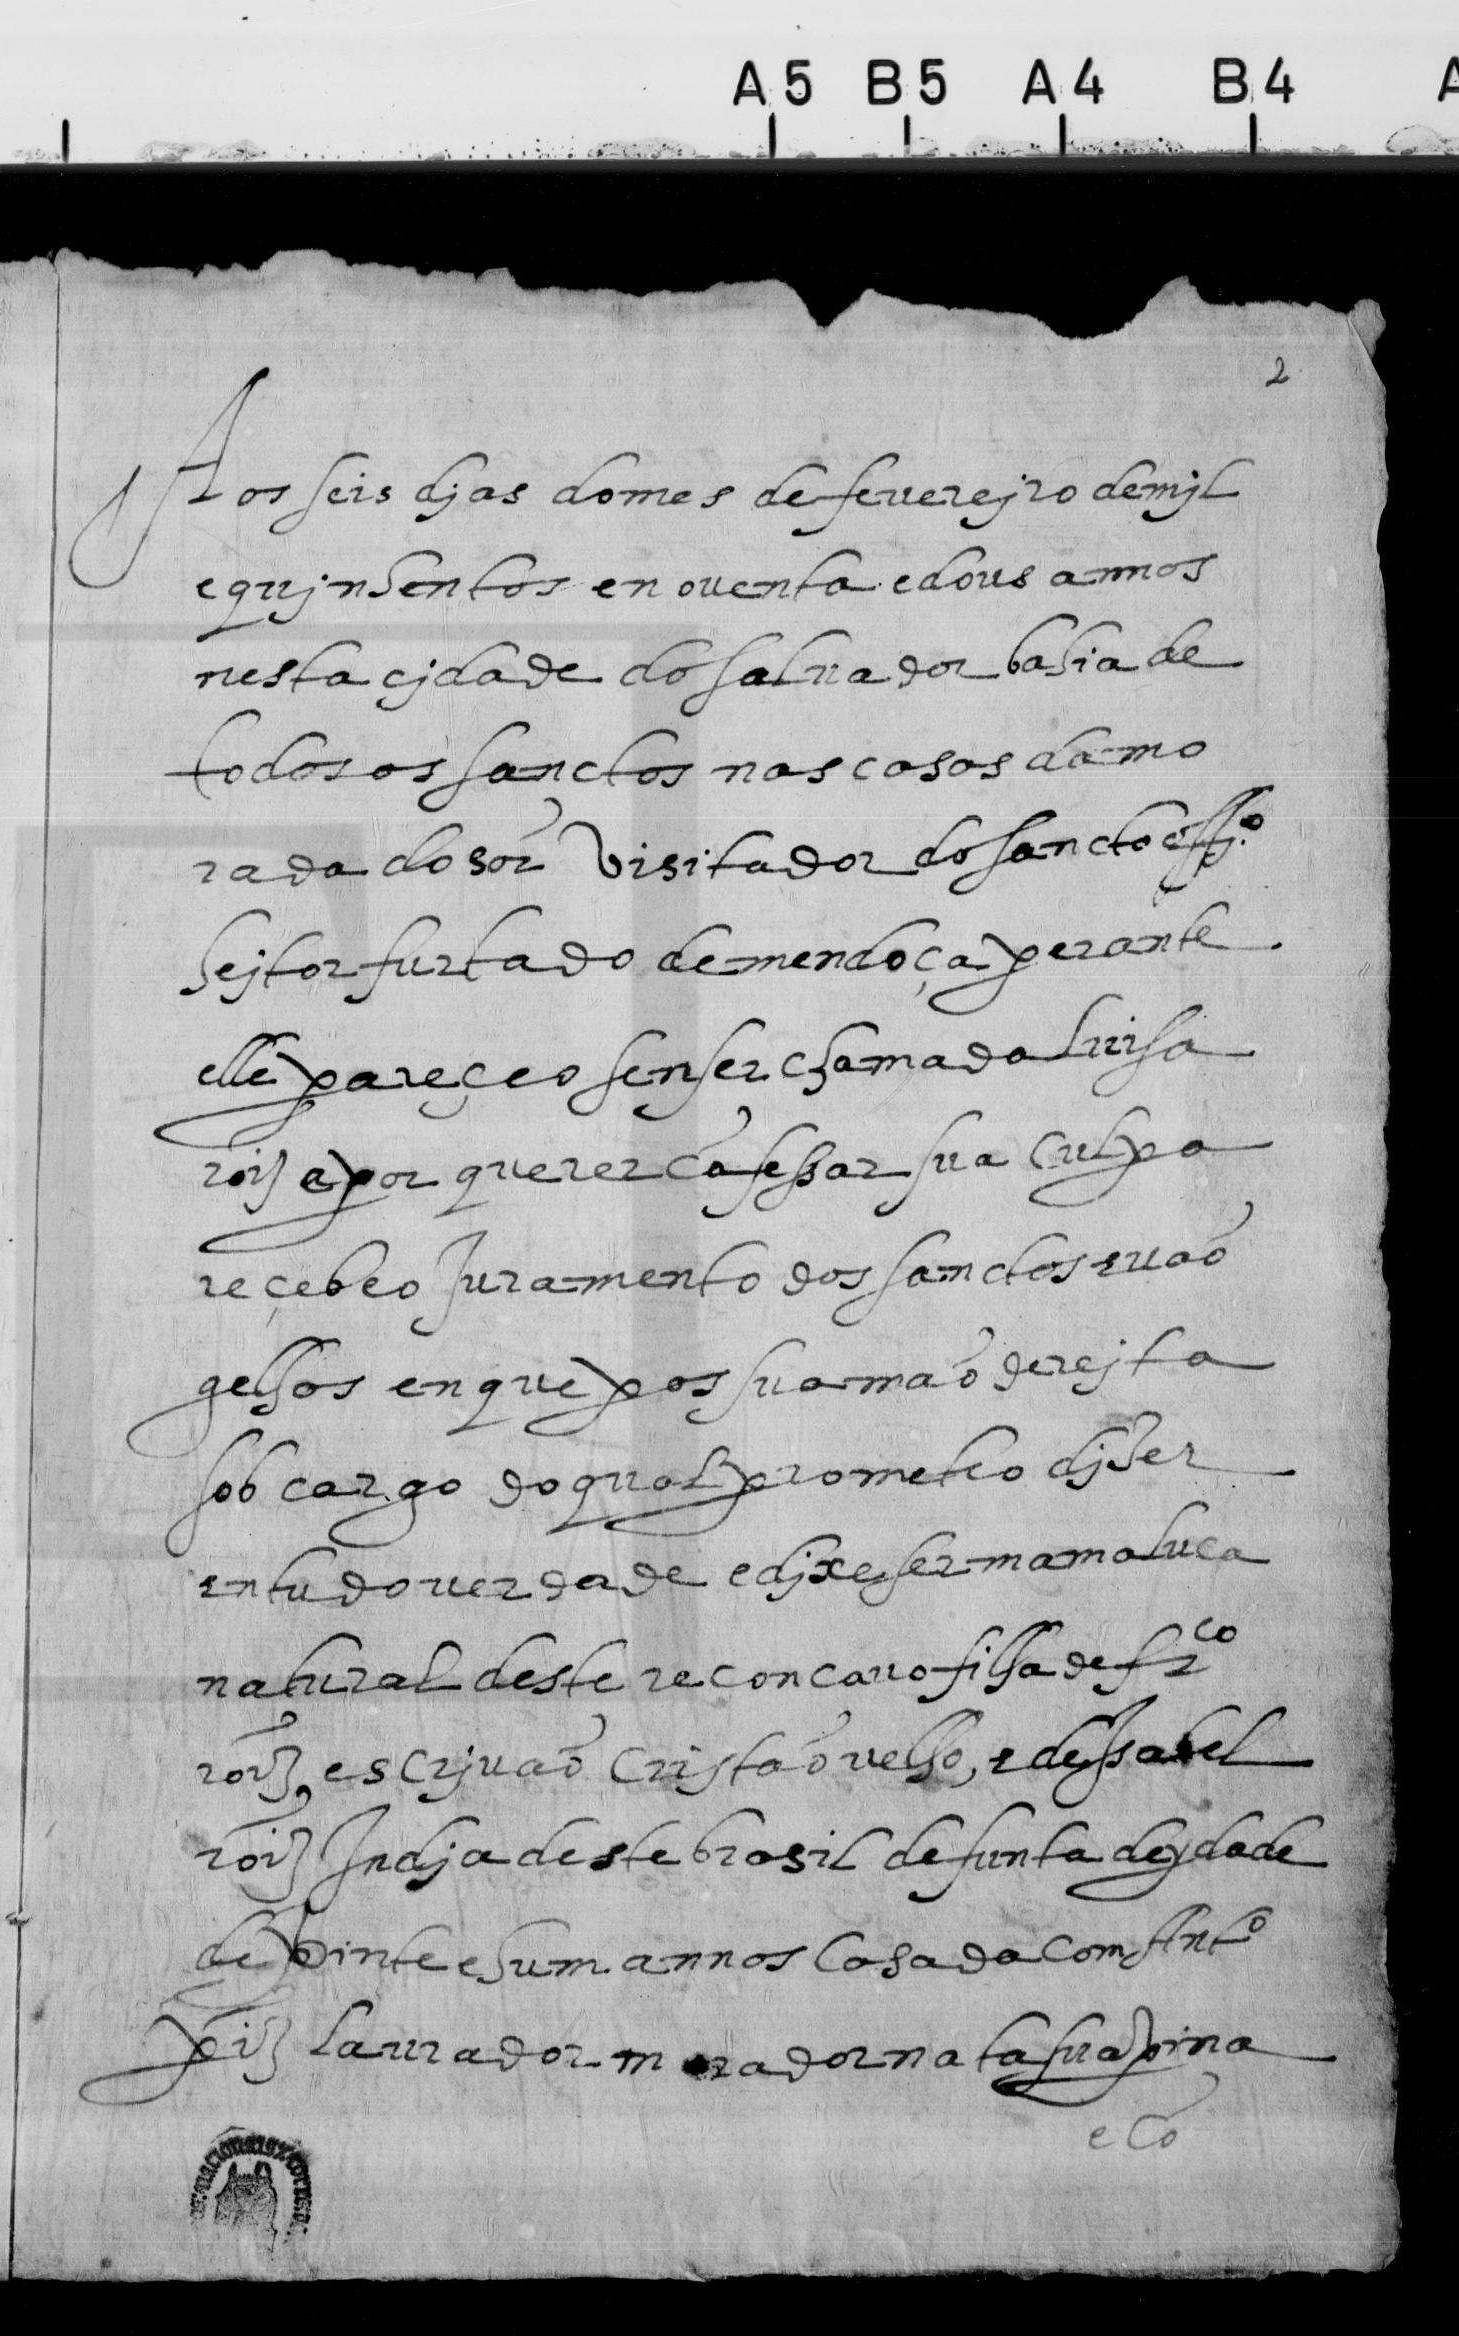 A5 B5 A4 B4 A
2
Aos seis djas do mes de feuerejro de mjl
e qujnhentos e nouenta e dous annos
nesta cjdade do saluador bahia de
todos os sanctos nas casas da mo
rada do sõr visitador do sancto offj.º
hejtor furtado de mendoça perante
elle pareçeo sen ser chamada luisa
roĩz e por querer cõfessar sua culpa
reçebeo juramento dos sanctos euaõ
gelhos en que pos sua maõ derejta
sob cargo do qual prometeo djzer
en tudo uerdade e djxe ser mamaluca
natural deste reconcauo filha de frco
roĩz, escrjuaõ cristaõ uelho, e de Isabel
roĩz Indja deste brasil defunta de ydade
de vinte e hum annos casada com Antº
pĩz laurador morador na tasuapina
e cõ